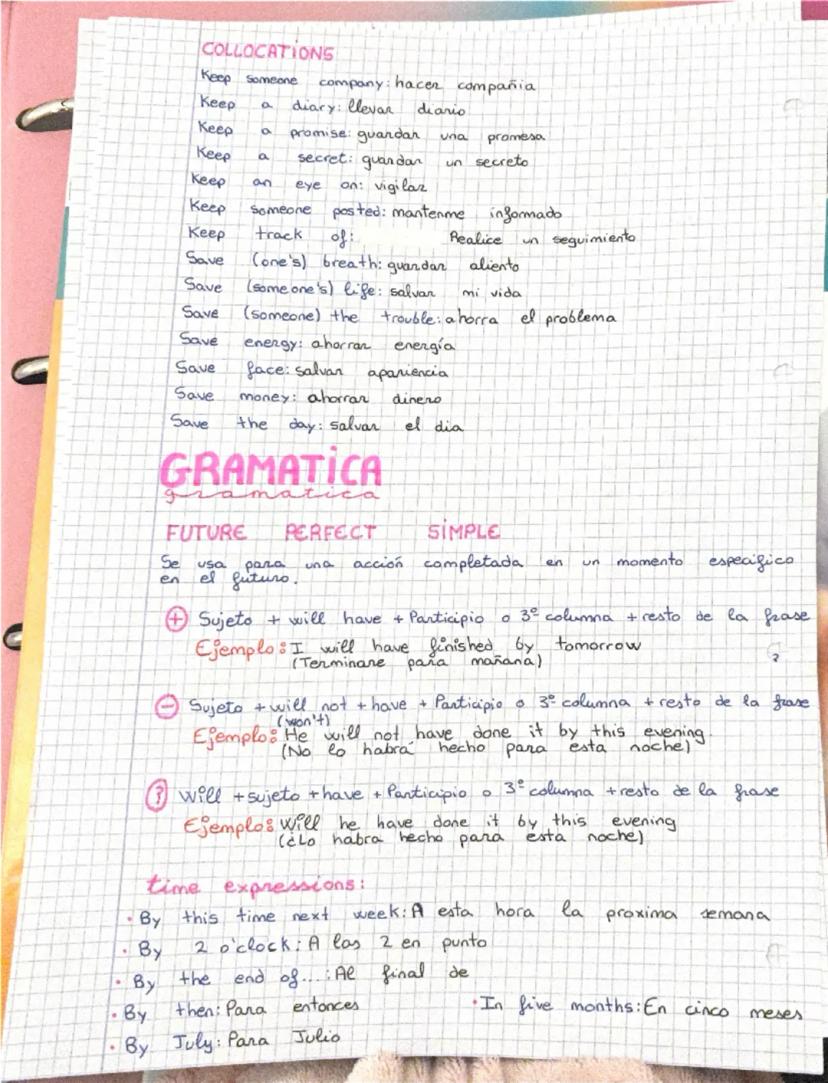 COLLOCATIONS
Keep someone company: hacer compañia
Keep a diary: llevar diario
Keep a promise: guardar una promesa
Keep a secret: guardar un secreto
Keep an eye on: vigilar
Keep someone posted: mantenme informado
Keep track of: Realice un seguimiento
Save (one's) breath: guardar aliento
Save (someone's) life: salvar mi vida
Save (someone) the trouble: ahorra el problema
Save energy: ahorrar energía
Save face: salvar apariencia
Save money: ahorrar dinero
Save the day: salvar el dia
GRAMATICA
gramatica
FUTURE PERFECT SIMPLE
Se usa para una acción completada en un momento especifico
en el futuro.
+ Sujeto + will have + Participio o 3º columna + resto de la frase
Ejemplo: I will have finished by tomorrow
(Terminare para mañana)
- Sujeto + will not + have + Participio o 3º columna + resto de la frase
(won't)
Ejemplo: He will not have done it by this evening
(No lo habrá hecho para esta noche)
? Will + sujeto + have + Participio o 3º columna + resto de la frase
Ejemplo: Will he have done it by this evening
(¿Lo habra hecho para esta noche)
time expressions:
• By this time next week: A esta hora la proxima semana
• By 2 o'clock: A las 2 en punto
• By the end of...: Al final de
• By then: Para entonces • In five months: En cinco meses
• By July: Para Julio